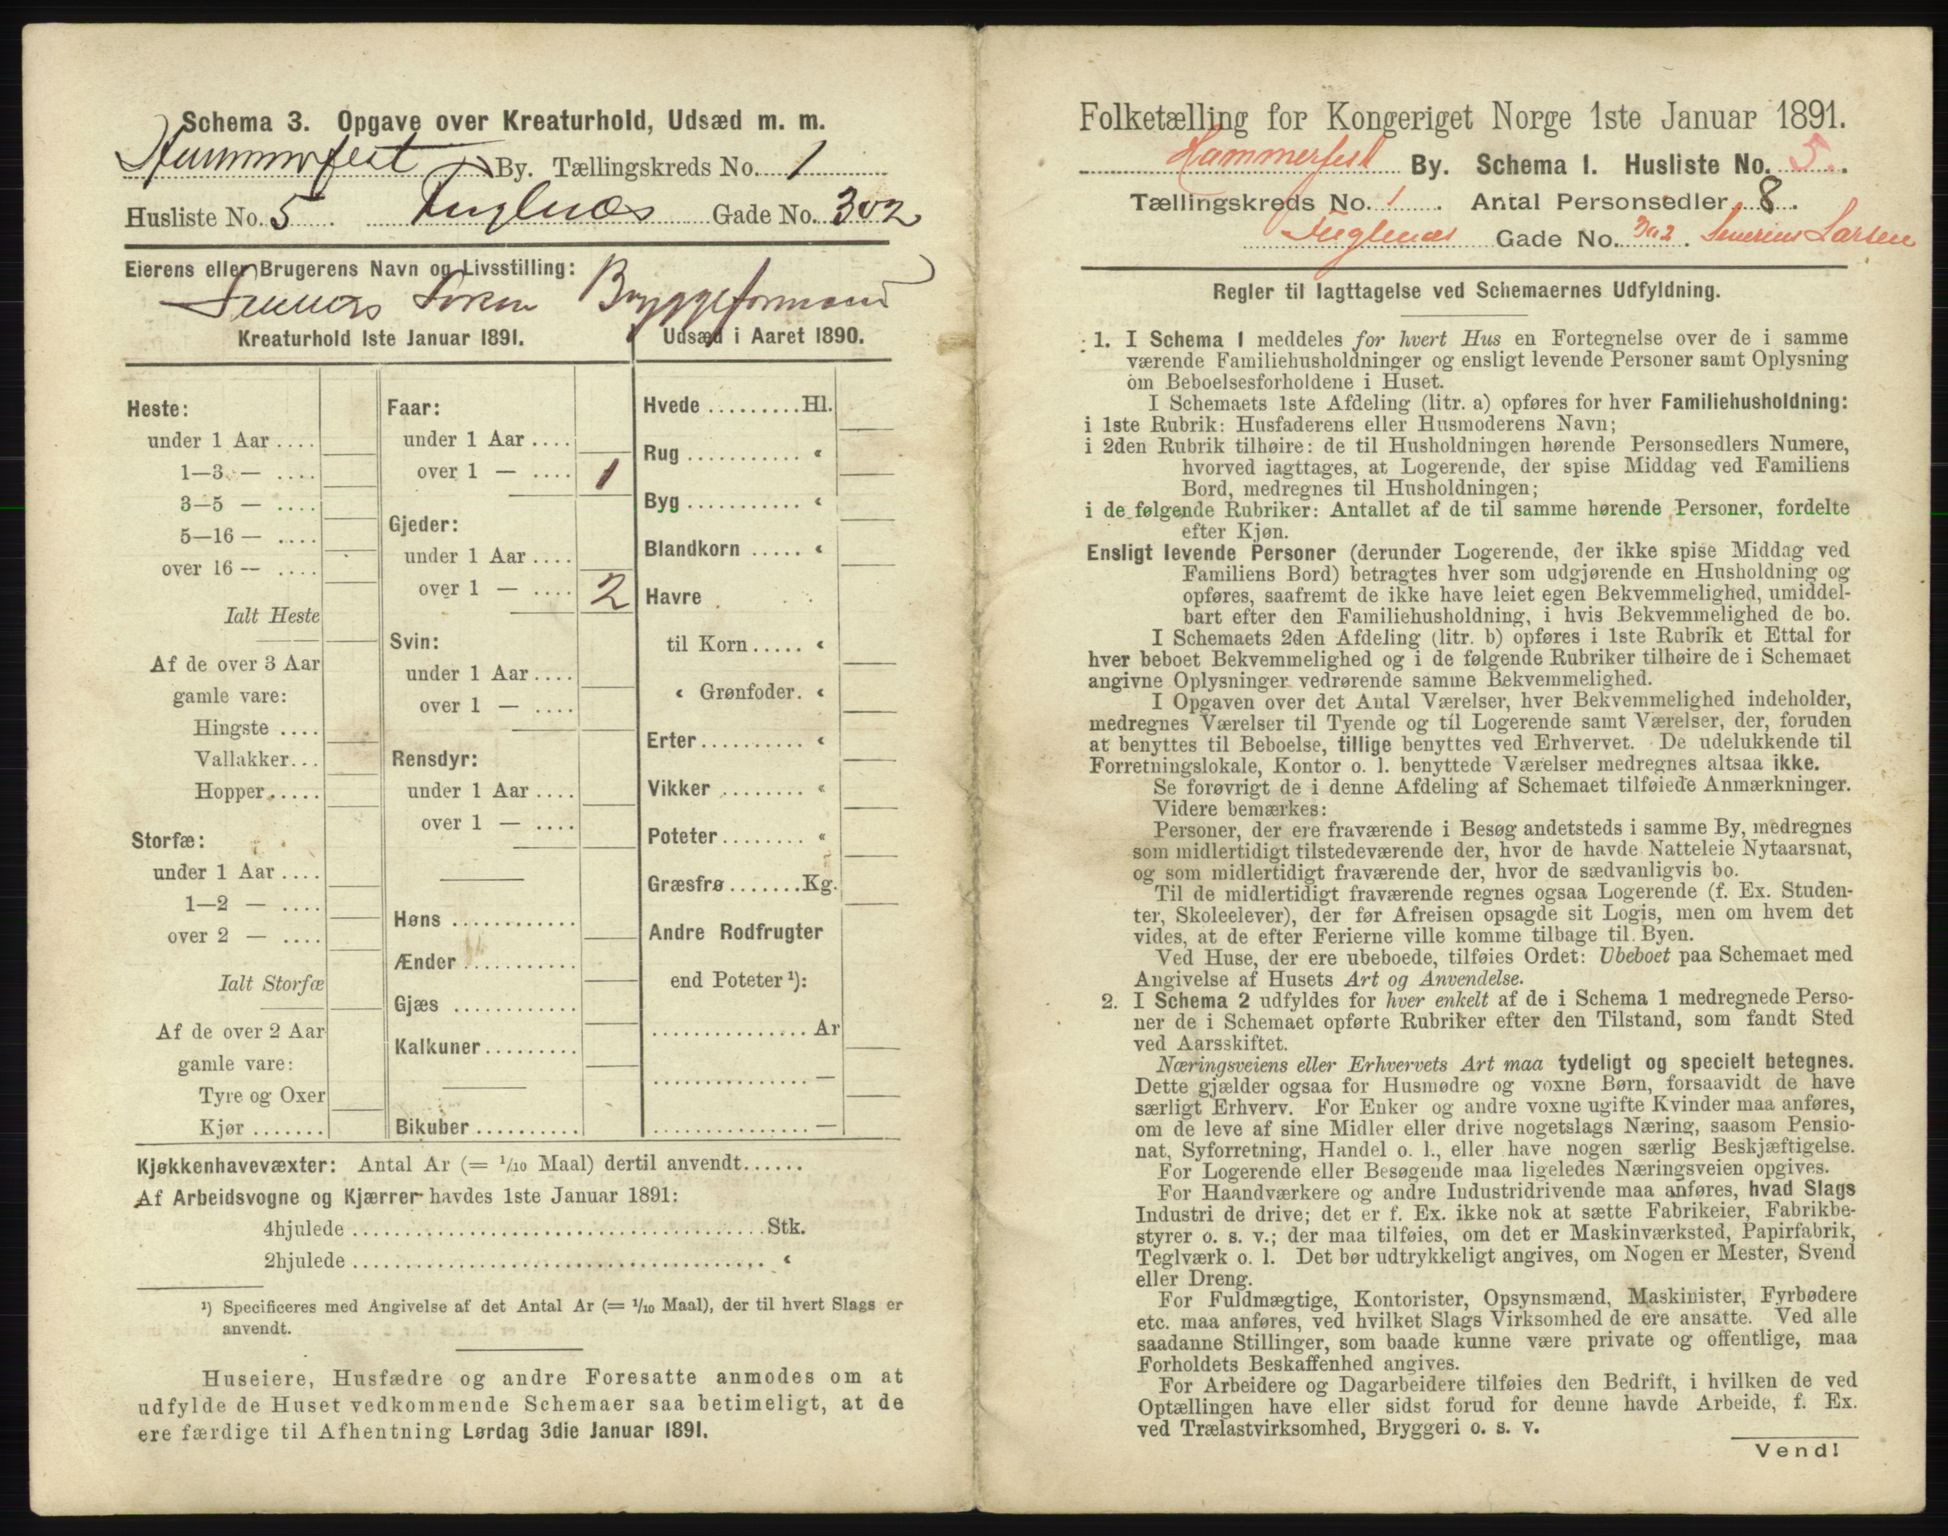 Schema 3. Opgave over Kreaturhold, Udsæd m. m.
Hammerfest By. Tællingskreds No. 1
Husliste No. 5 Fuglenæs Gade No. 302
Eierens eller Brugerens Navn og Livsstilling:
Bryggeformand
Kreaturhold 1ste Januar 1891.
Heste:
under 1 Aar ....
1—3 — ....
3—5 — ....
5—16 — ....
over 16 — ....
Ialt Heste
Af de over 3 Aar
gamle vare:
Hingste ....
Vallakker...
Hopper.....
Storfæ:
under 1 Aar ....
1—2 — ....
over 2 — ....
Ialt Storfæ
Af de over 2 Aar
gamle vare:
Tyre og Oxer
Kjør .......
Faar:
under 1 Aar ....
over 1 — .... 1
Gjeder:
under 1 Aar....
over 1 — .... 2
Svin:
under 1 Aar....
over 1 — ....
Rensdyr:
under 1 Aar....
over 1 — ....
Høns ............
Ænder............
Gjæs ............
Kalkuner.........
Bikuber..........
Udsæd i Aaret 1890.
Hvede .........Hl.
Rug ........... «
Byg ........... «
Blandkorn ..... «
Havre
til Korn..... «
« Grønfoder. «
Erter.......... «
Vikker ........ «
Poteter ....... «
Græsfrø .......Kg.
Andre Rodfrugter
end Poteter ¹):
...............Ar
............... —
............... —
Kjøkkenhavevæxter: Antal Ar (= 1/10 Maal) dertil anvendt......
Af Arbeidsvogne og Kjærrer havdes 1ste Januar 1891:
4hjulede ........................................Stk.
2hjulede ........................................ «
¹) Specificeres med Angivelse af det Antal Ar (= 1/10 Maal), der til hvert Slags er
anvendt.
Huseiere, Husfædre og andre Foresatte anmodes om at
udfylde de Huset vedkommende Schemaer saa betimeligt, at de
ere færdige til Afhentning Lørdag 3die Januar 1891.
Folketælling for Kongeriget Norge 1ste Januar 1891.
Hammerfest By. Schema 1. Husliste No. 5.
Tællingskreds No. 1. Antal Personsedler 8.
Fuglenæs Gade No. 302. Severin Larsen
Regler til Iagttagelse ved Schemaernes Udfyldning.
1. I Schema 1 meddeles for hvert Hus en Fortegnelse over de i samme
værende Familiehusholdninger og ensligt levende Personer samt Oplysning
om Beboelsesforholdene i Huset.
I Schemaets 1ste Afdeling (litr. a) opføres for hver Familiehusholdning:
i 1ste Rubrik: Husfaderens eller Husmoderens Navn;
i 2den Rubrik tilhøire: de til Husholdningen hørende Personsedlers Numere,
hvorved iagttages, at Logerende, der spise Middag ved Familiens
Bord, medregnes til Husholdningen;
i de følgende Rubriker: Antallet af de til samme hørende Personer, fordelte
efter Kjøn.
Ensligt levende Personer (derunder Logerende, der ikke spise Middag ved
Familiens Bord) betragtes hver som udgjørende en Husholdning og
opføres, saafremt de ikke have leiet egen Bekvemmelighed, umiddel-
bart efter den Familiehusholdning, i hvis Bekvemmelighed de bo.
I Schemaets 2den Afdeling (litr. b) opføres i 1ste Rubrik et Ettal for
hver beboet Bekvemmelighed og i de følgende Rubriker tilhøire de i Schemaet
angivne Oplysninger vedrørende samme Bekvemmelighed.
I Opgaven over det Antal Værelser, hver Bekvemmelighed indeholder,
medregnes Værelser til Tyende og til Logerende samt Værelser, der, foruden
at benyttes til Beboelse, tillige benyttes ved Erhvervet. De udelukkende til
Forretningslokale, Kontor o. l. benyttede Værelser medregnes altsaa ikke.
Se forøvrigt de i denne Afdeling af Schemaet tilføiede Anmærkninger.
Videre bemærkes:
Personer, der ere fraværende i Besøg andetsteds i samme By, medregnes
som midlertidigt tilstedeværende der, hvor de havde Natteleie Nytaarsnat,
og som midlertidigt fraværende der, hvor de sædvanligvis bo.
Til de midlertidigt fraværende regnes ogsaa Logerende (f. Ex. Studen-
ter, Skoleelever), der før Afreisen opsagde sit Logis, men om hvem det
vides, at de efter Ferierne ville komme tilbage til Byen.
Ved Huse, der ere ubeboede, tilføies Ordet: Ubeboet paa Schemaet med
Angivelse af Husets Art og Anvendelse.
2. I Schema 2 udfyldes for hver enkelt af de i Schema 1 medregnede Perso-
ner de i Schemaet opførte Rubriker efter den Tilstand, som fandt Sted
ved Aarsskiftet.
Næringsveiens eller Erhvervets Art maa tydeligt og specielt betegnes.
Dette gjælder ogsaa for Husmødre og voxne Børn, forsaavidt de have
særligt Erhverv. For Enker og andre voxne ugifte Kvinder maa anføres,
om de leve af sine Midler eller drive nogetslags Næring, saasom Pensio-
nat, Syforretning, Handel o. l., eller have nogen særlig Beskjæftigelse.
For Logerende eller Besøgende maa ligeledes Næringsveien opgives.
For Haandværkere og andre Industridrivende maa anføres, hvad Slags
Industri de drive; det er f. Ex. ikke nok at sætte Fabrikeier, Fabrikbe-
styrer o. s. v.; der maa tilføies, om det er Maskinværksted, Papirfabrik,
Teglværk o. l. Det bør udtrykkeligt angives, om Nogen er Mester, Svend
eller Dreng.
For Fuldmægtige, Kontorister, Opsynsmænd, Maskinister, Fyrbødere
etc. maa anføres, ved hvilket Slags Virksomhed de ere ansatte. Ved alle
saadanne Stillinger, som baade kunne være private og offentlige, maa
Forholdets Beskaffenhed angives.
For Arbeidere og Dagarbeidere tilføies den Bedrift, i hvilken de ved
Optællingen have eller sidst forud for denne havde Arbeide, f. Ex.
ved Trælastvirksomhed, Bryggeri o. s. v.
Vend!